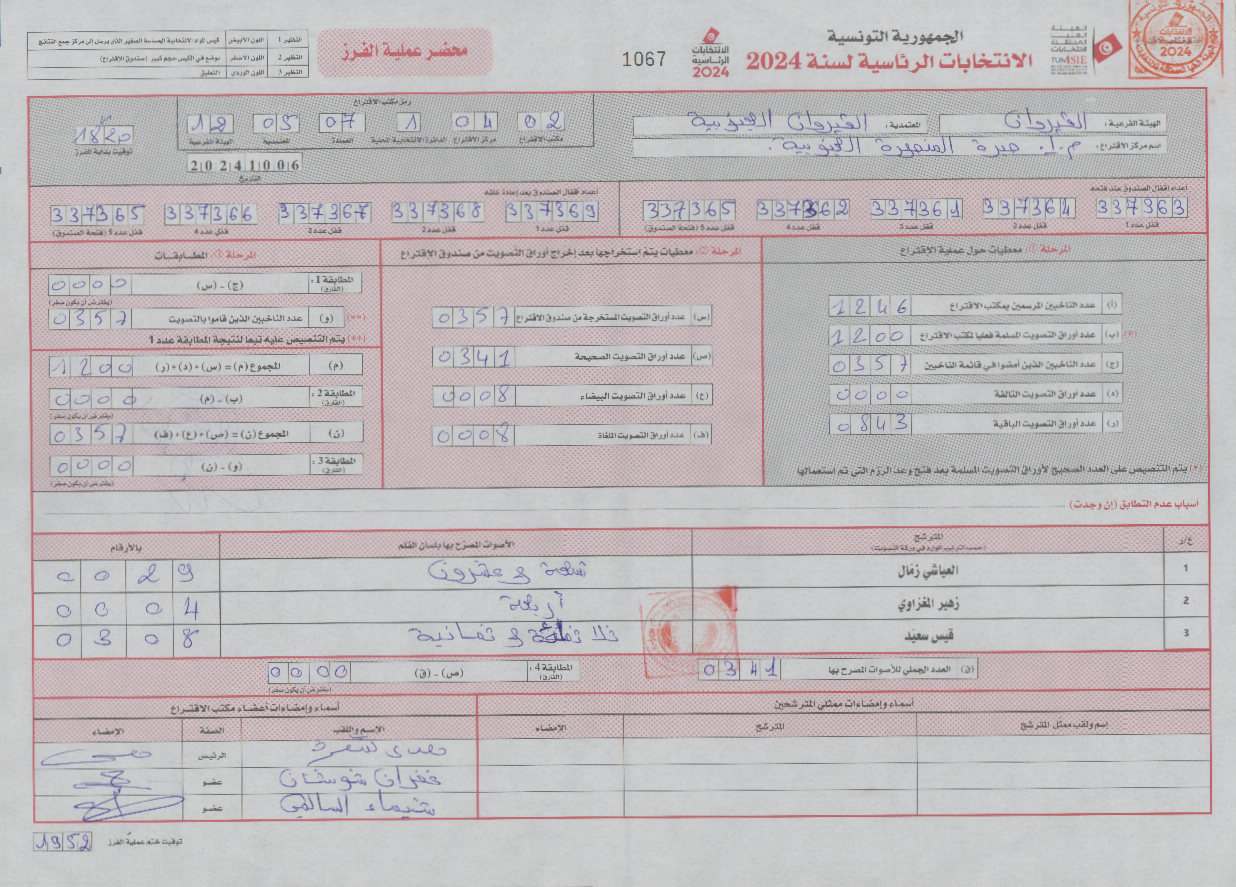 الجمهورية التونسية
الانتخابات الرئاسية لسنة 2024
الهيئة العليا المستقلة للانتخابات
TUNISIE
الانتخابات الرئاسية 2024
1067
محضر عملية الفرز
النظير 1 اللون الأبيض كيس المواد الانتخابية الحساسة الصغير الذي يرسل إلى مركز جمع النتائج
النظير 2 اللون الأصفر يوضع في الكيس حجم كبير (صندوق الاقتراع)
النظير 3 اللون الوردي التعليق
الهيئة الفرعية: القيروان المعتمدية: القيروان الجنوبية
اسم مركز الاقتراع: م.إ. صبرة المنصورة الجنوبية
رمز مكتب الاقتراع
02 04 1 07 05 12
مكتب الاقتراع مركز الاقتراع الدائرة الانتخابية المحلية العمادة المعتمدية الهيئة الفرعية
20241006
التاريخ
1820
توقيت بداية الفرز
أعداد أقفال الصندوق عند فتحه
337363 337364 337361 337362 337365
قفل عدد 1 قفل عدد 2 قفل عدد 3 قفل عدد 4 قفل عدد 5 (فتحة الصندوق)
أعداد أقفال الصندوق بعد إعادة غلقه
337369 337368 337367 337366 337365
قفل عدد 1 قفل عدد 2 قفل عدد 3 قفل عدد 4 قفل عدد 5 (فتحة الصندوق)
المرحلة ①: معطيات حول عملية الاقتراع
(أ) عدد الناخبين المرسمين بمكتب الاقتراع 1246
(*) (ب) عدد أوراق التصويت المسلمة فعليا لمكتب الاقتراع 1200
(ج) عدد الناخبين الذين أمضوا في قائمة الناخبين 0357
(د) عدد أوراق التصويت التالفة 0000
(ر) عدد أوراق التصويت الباقية 0843
(*) يتم التنصيص على العدد الصحيح لأوراق التصويت المسلمة بعد فتح وعد الرزم التي تم استعمالها
المرحلة ②: معطيات يتم استخراجها بعد إخراج أوراق التصويت من صندوق الاقتراع
(س) عدد أوراق التصويت المستخرجة من صندوق الاقتراع 0357
(ص) عدد أوراق التصويت الصحيحة 0341
(ع) عدد أوراق التصويت البيضاء 0008
(ف) عدد أوراق التصويت الملغاة 0008
المرحلة ③: المطابقات
المطابقة 1: (الفارق) (ج) - (س) 0000
(يفترض أن يكون صفر)
(**) (و) عدد الناخبين الذين قاموا بالتصويت 0357
(**) يتم التنصيص عليه تبعا لنتيجة المطابقة عدد 1
(م) المجموع (م) = (س) + (د) + (ر) 1200
المطابقة 2: (الفارق) (ب) - (م) 0000
(يفترض أن يكون صفر)
(ن) المجموع (ن) = (ص) + (ع) + (ف) 0357
المطابقة 3: (الفارق) (و) - (ن) 0000
(يفترض أن يكون صفر)
أسباب عدم التطابق (إن وجدت)
ع/ر المترشح (حسب الترتيب الوارد في ورقة التصويت) الأصوات المصرّح بها بلسان القلم بالأرقام
1 العياشي زمّال تسعة و عشرون 0029
2 زهير المغزاوي أربعة 0004
3 قيس سعيّد ثلاثمائة و ثمانية 0308
(ق) العدد الجملي للأصوات المصرح بها 0341
المطابقة 4: (الفارق) (ص) - (ق) 0000
(يفترض أن يكون صفر)
أسماء وإمضاءات ممثلي المترشحين
إسم ولقب ممثل المترشح المترشح الامضاء
أسماء وإمضاءات أعضاء مكتب الاقتراع
الإسم واللقب الصفة الإمضاء
الرئيس
غفران شوشان عضو
شيماء السالمي عضو
1952 توقيت ختم عملية الفرز